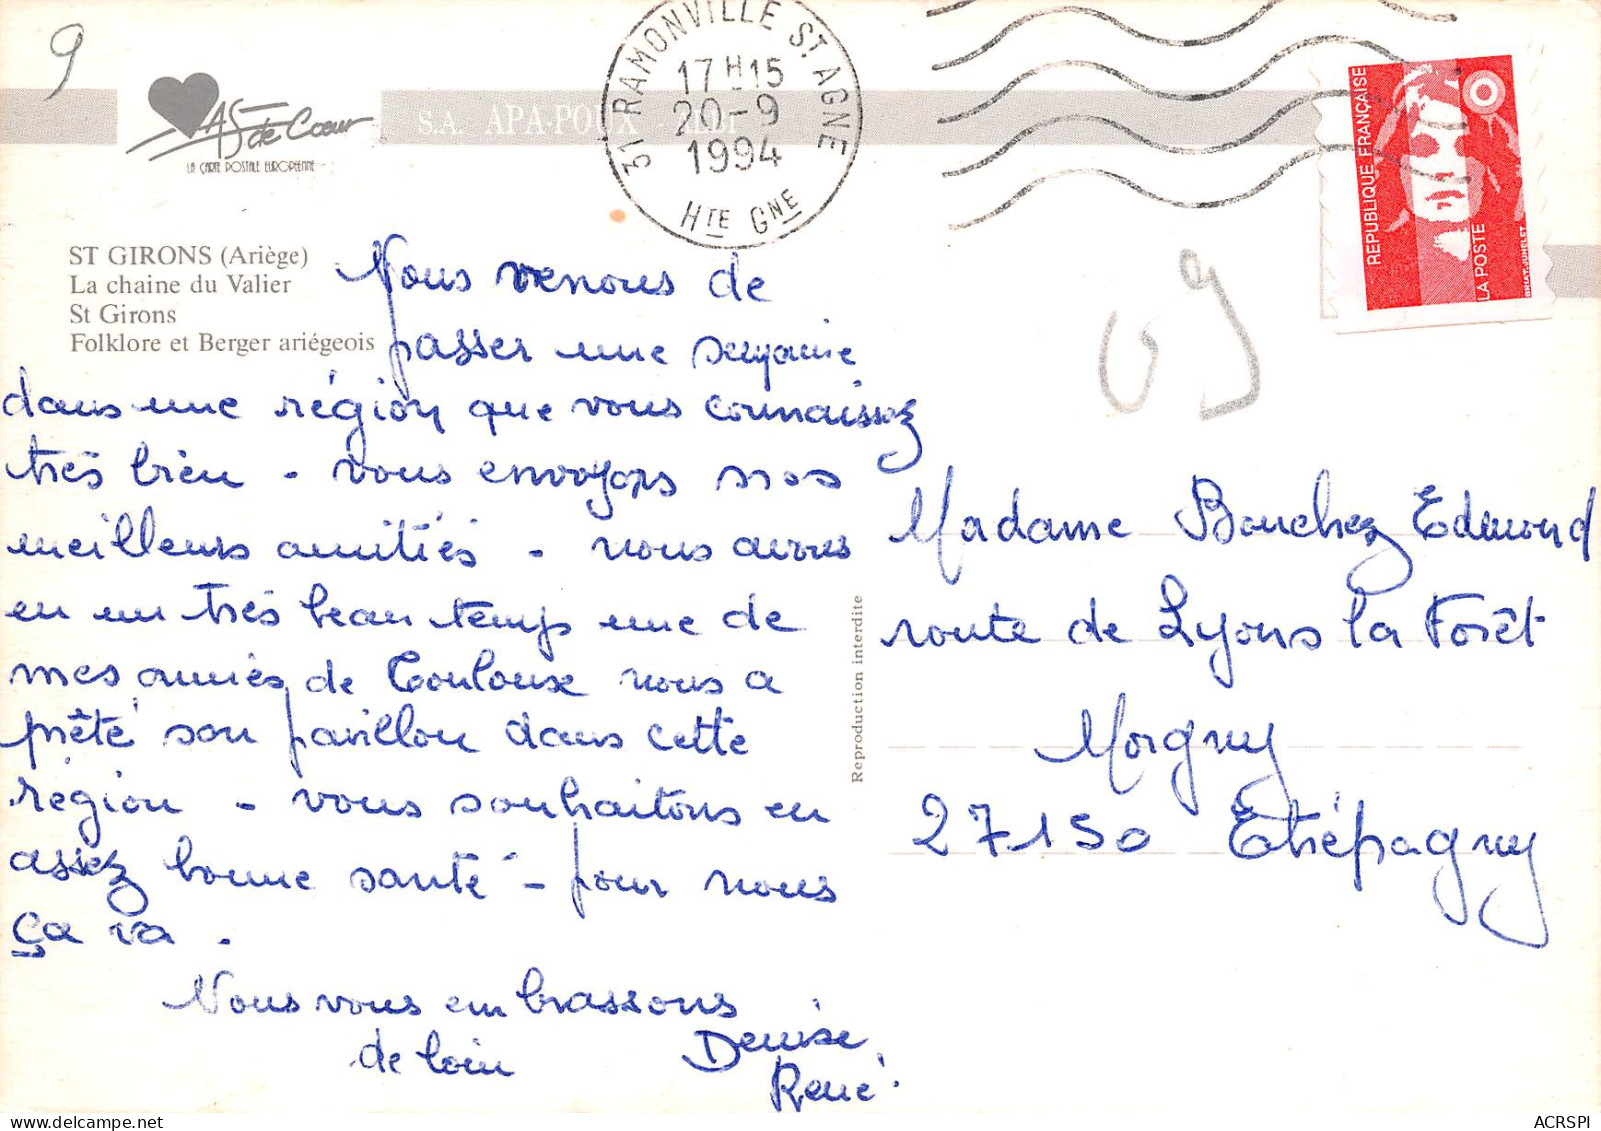 9
AS de Cœur
LA CARTE POSTALE EUROPÉENNE
S.A. APA-POUX - ALBI
31 RAMONVILLE ST AGNE
17 H 15
20-9
1994
HTE GNE
RÉPUBLIQUE FRANÇAISE
LA POSTE
BRIAT-JUMELET
ST GIRONS (Ariège)
La chaine du Valier
St Girons
Folklore et Berger ariégeois
Nous venons de
passer une semaine
dans une région que vous connaissez
très bien - vous envoyons nos
meilleurs amitiés - nous avons
eu un très beau temps une de
mes amies de Toulouse nous a
prêté son pavillon dans cette
région - vous souhaitons en
assez bonne santé - pour nous
ça va .
Nous vous embrassons
de loin
Denise
René .
Reproduction interdite
09
Madame Bouchez Edmond
route de Lyons la Forêt
Morgny
27150 Etrépagny
ACRSPI